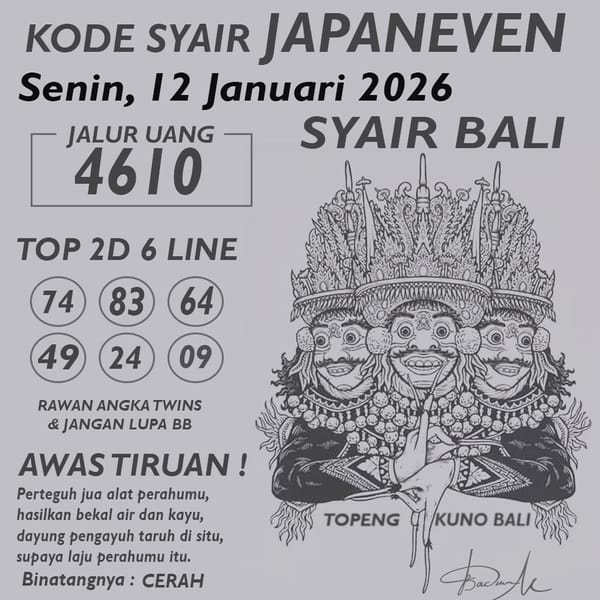 KODE SYAIR JAPANEVEN
Senin, 12 Januari 2026
SYAIR BALI
JALUR UANG
4610
TOP 2D 6 LINE
74 83 64
49 24 09
RAWAN ANGKA TWINS
& JANGAN LUPA BB
AWAS TIRUAN !
Perteguh jua alat perahumu,
hasilkan bekal air dan kayu,
dayung pengayuh taruh di situ,
supaya laju perahumu itu.
Binatangnya : CERAH
TOPENG KUNO BALI